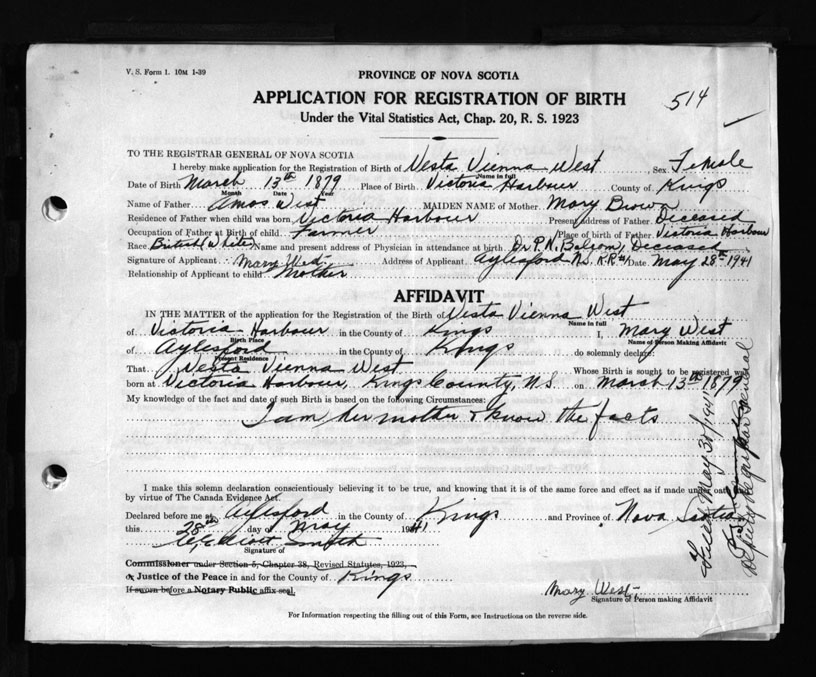 V. S. Form 1. 10M 1-39
PROVINCE OF NOVA SCOTIA
514
APPLICATION FOR REGISTRATION OF BIRTH
Under the Vital Statistics Act, Chap. 20, R. S. 1923
TO THE REGISTRAR GENERAL OF NOVA SCOTIA
I hereby make application for the Registration of Birth of Vesta Vienna West Sex Female
Name in full
Date of Birth March 13th 1879 Place of Birth Victoria Harbour County of Kings
Month Date Year
Name of Father Amos West MAIDEN NAME of Mother Mary Brown
Residence of Father when child was born Victoria Harbour Present address of Father Deceased
Occupation of Father at Birth of child Farmer Place of Birth of Father Victoria Harbour
Race British (White) Name and present address of Physician in attendance at birth Dr P.N. Balsom, Deceased
Signature of Applicant Mary West Address of Applicant Aylesford N.S. R.R. Date May 28th 1941
Relationship of Applicant to child Mother
AFFIDAVIT
IN THE MATTER of the application for the Registration of the Birth of Vesta Vienna West
Name in full
of Victoria Harbour in the County of Kings I, Mary West
Birth Place Name of Person Making Affidavit
of Aylesford in the County of Kings do solemnly declare:
Present Residence
That Vesta Vienna West Whose Birth is sought to be registered was
born at Victoria Harbour, Kings County, N.S. on March 13th 1879
My knowledge of the fact and date of such Birth is based on the following Circumstances:
I am her mother & know the facts
I make this solemn declaration conscientiously believing it to be true, and knowing that it is of the same force and effect as if made under oath
by virtue of The Canada Evidence Act.
Declared before me at Aylesford in the County of Kings and Province of Nova Scotia
this 28th day of May 1941
Elliott Smith
Signature of
Commissioner under Section 5, Chapter 38, Revised Statutes, 1923,
or Justice of the Peace in and for the County of Kings
If sworn before a Notary Public affix seal.
Mary West
Signature of Person making Affidavit
For Information respecting the filling out of this Form, see Instructions on the reverse side.
Filed May 30/1941
Deputy Registrar General